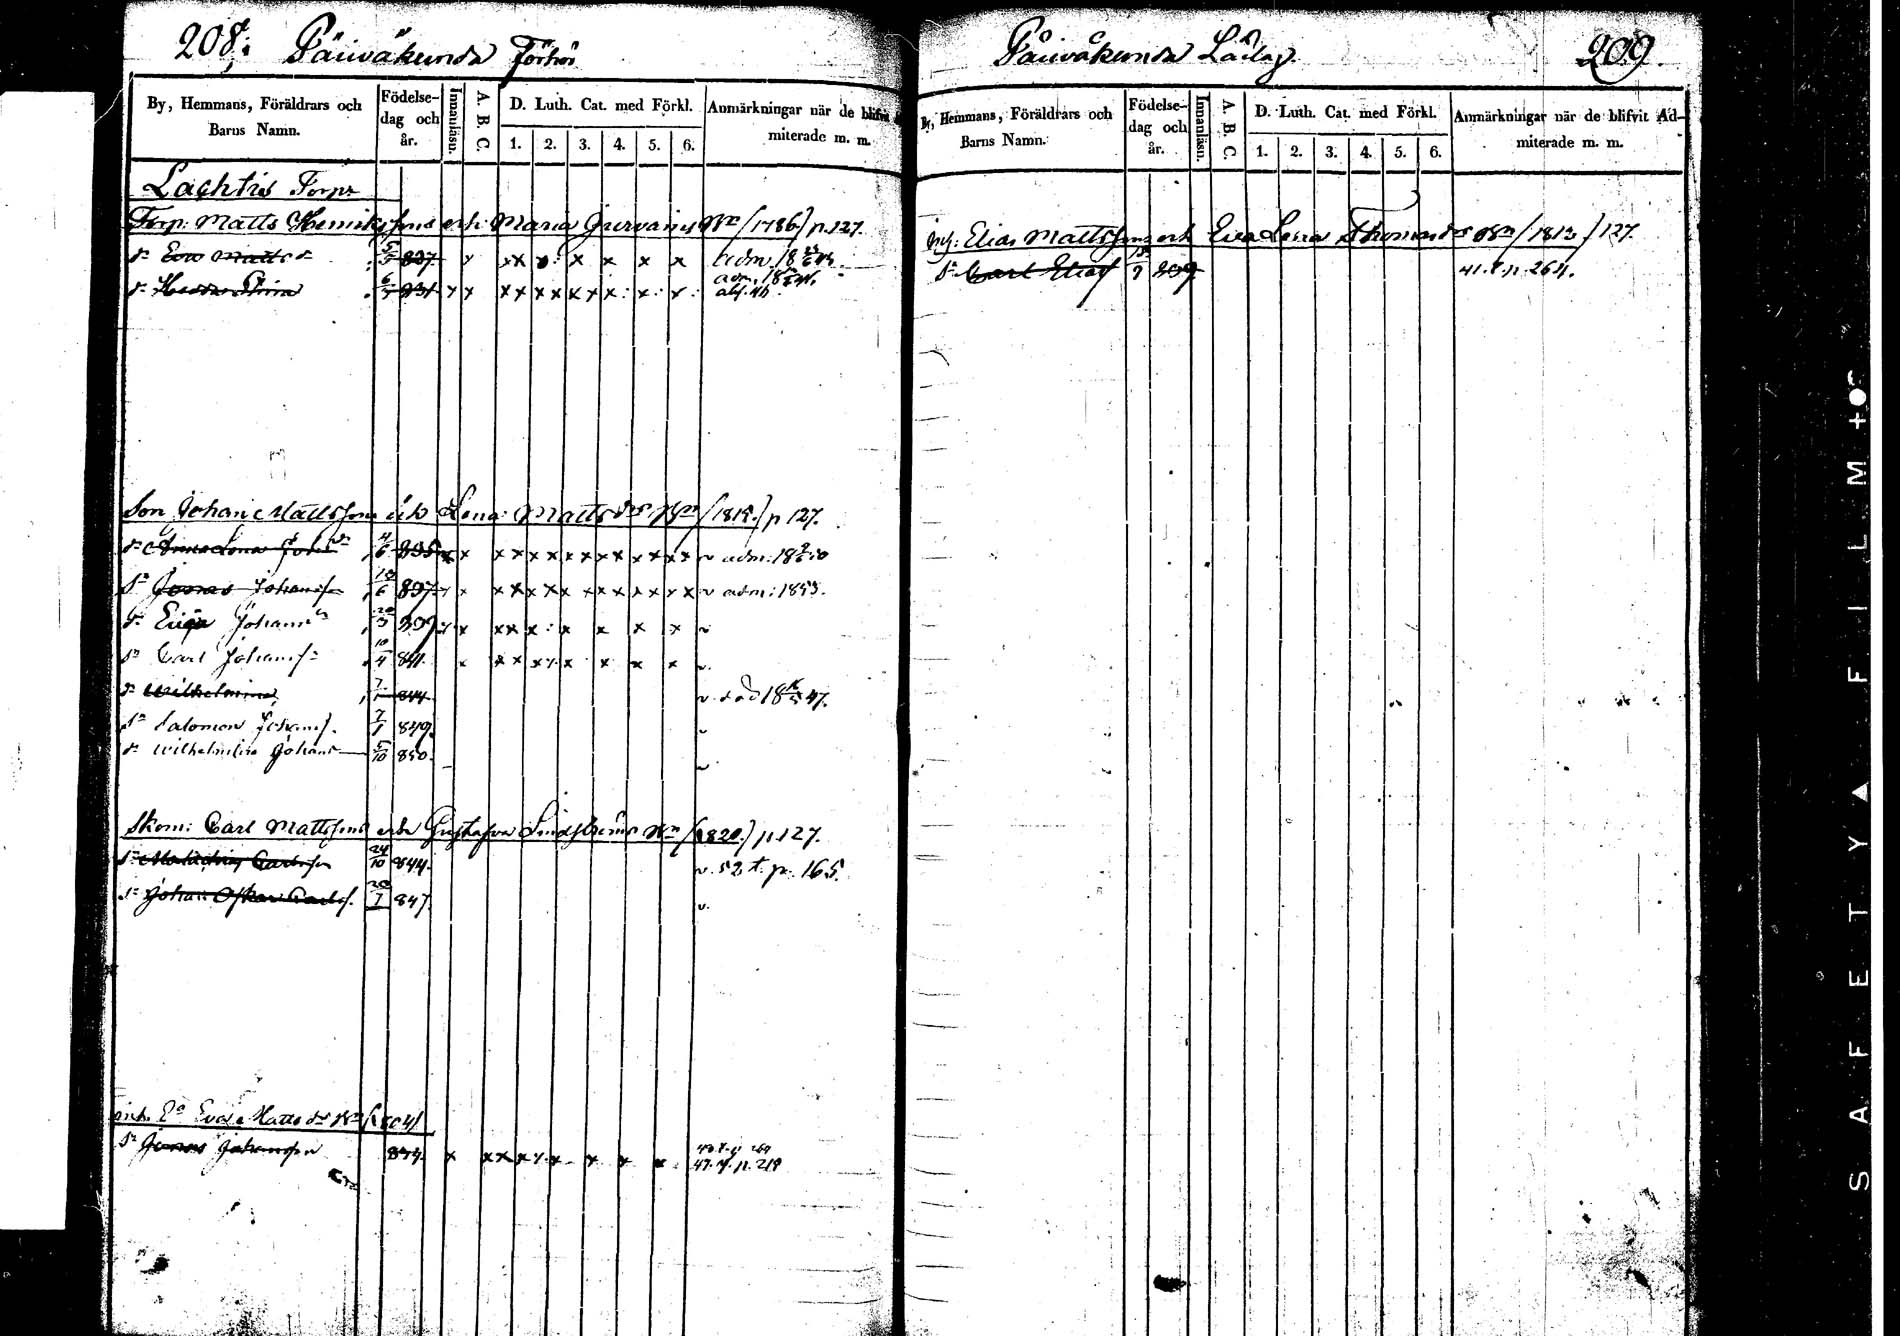 208. Päiväkunda Förhör
By, Hemmans, Föräldrars och Barns Namn.
Födelse-dag och år.
Innanläsn.
A. B. C.
D. Luth. Cat. med Förkl.
1. 2. 3. 4. 5. 6.
Anmärkningar när de blifvit
miterade m. m.
Lachtis Torp
Torp: Matts Henrikss och Maria (1786) p. 127.
dr Eva Matts dr 5/5 827 x x x x x x x adm. 18
dr Stina 6/5 831 x x x x x x x x x x x adm. 18
Son Johan Mattsson och Lena Matts dr (1815) p 127.
dr Anna Lena Joh dr 4/6 835 x x x x x x x x x x x x x v adm: 18 50
sn Jonas Johanss 13/6 837 x x x x x x x x x x x x v adm: 1853.
dr Johans dr 20/3 839 x x x x x x x x v
sn Carl Johanss 10/4 841 x x x x x x x x v.
dr Wilhelmina 7/1 844 v. död 18 47.
sn Salomon Johanss. 7/1 849 v
dr Wilhelmina Johans 5/10 850. v
Skom: Carl Mattsson och Gustafva Lindström (1820) p. 127.
sn Carlsson 24/10 844. v. 52 t. p. 165.
sn Johan Oskar Carlss. 20/7 847. v.
inh. Eva Matts dr (1804)
sn Jonas Johansson 834. x x x x x x x x x 43. t. p. 264
47. t. p. 218
Päiväkunda Läslag. 209.
By, Hemmans, Föräldrars och
Barns Namn.
Födelse-dag och år.
Innanläsn.
A. B. C.
D. Luth. Cat. med Förkl.
1. 2. 3. 4. 5. 6.
Anmärkningar när de blifvit Ad-
miterade m. m.
Elias Mattsson och Eva Lena Thomas dr (1813) 127.
sn Carl Eliass 15/7 839 41. t. p. 264.
SAFETY▲FILM